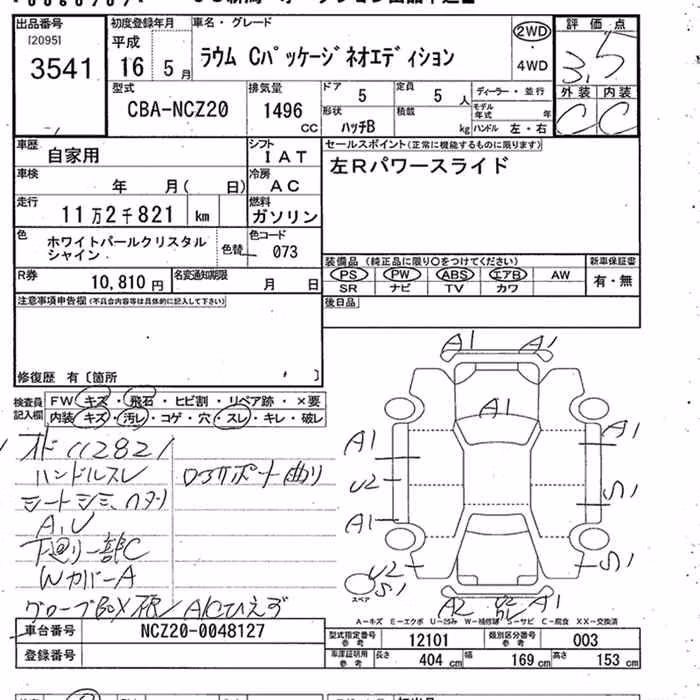 出品番号
[2095]
3541
初度登録年月
平成
16 5月
車名・グレード
ラウム Cパッケージネオエディション
2WD
・
4WD
評価点
3.5
外装 内装
C C
型式
CBA-NCZ20
排気量
1496
CC
ドア 5
定員 5 人
形状
ハッチB
積載
kg
ディーラー・並行
モデル年式 年
ハンドル 左・右
車歴
自家用
シフト
IAT
車検
年 月( 日)
冷房
AC
走行
11万2千821 km
燃料
ガソリン
色
ホワイトパールクリスタル
シャイン
色替
色コード
073
R券
10,810円
名変通知期限
月 日
セールスポイント(正常に機能するものに限ります)
左Rパワースライド
装備品 (純正品に限り○をつけてください)
PS PW ABS エアB AW
SR ナビ TV カワ
新車保証書
有・無
後日品
注意事項申告欄(不具合内容等は具体的に記入して下さい)
修復歴 有〔箇所 〕
検査員
記入欄
FW キズ・飛石・ヒビ割・リペア跡・×要
内装 キズ・汚レ・コゲ・穴・スレ・キレ・破レ
112821
ハンドルスレ
コアサポート曲り
A,U
下廻り一部C
WカバーA
グローブBOX A/Cひえず
A1 A1
A1
A1 A1
U2 S1
A1
U2 S1
S1
スペア
A2 U2 A1
A-キズ E-エクボ U-凹み W-補修跡 S-サビ C-腐食 XX-交換済
車台番号
NCZ20-0048127
登録番号
型式指定番号
参考
12101
類別区分番号
参考
003
車庫証明用
参考
長さ 404 cm
幅 169 cm
高さ 153 cm